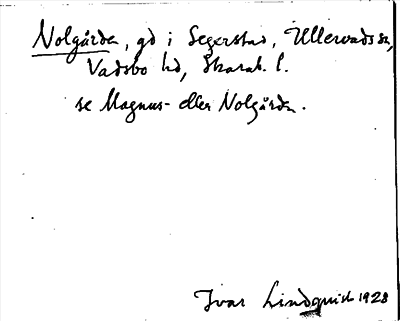 Nolgården, gd i Segerstad, Ullervads sn,
Vadsbo hd, Skarab. l.
se Magnus- eller Nolgården.
Ivar Lindquist 1928